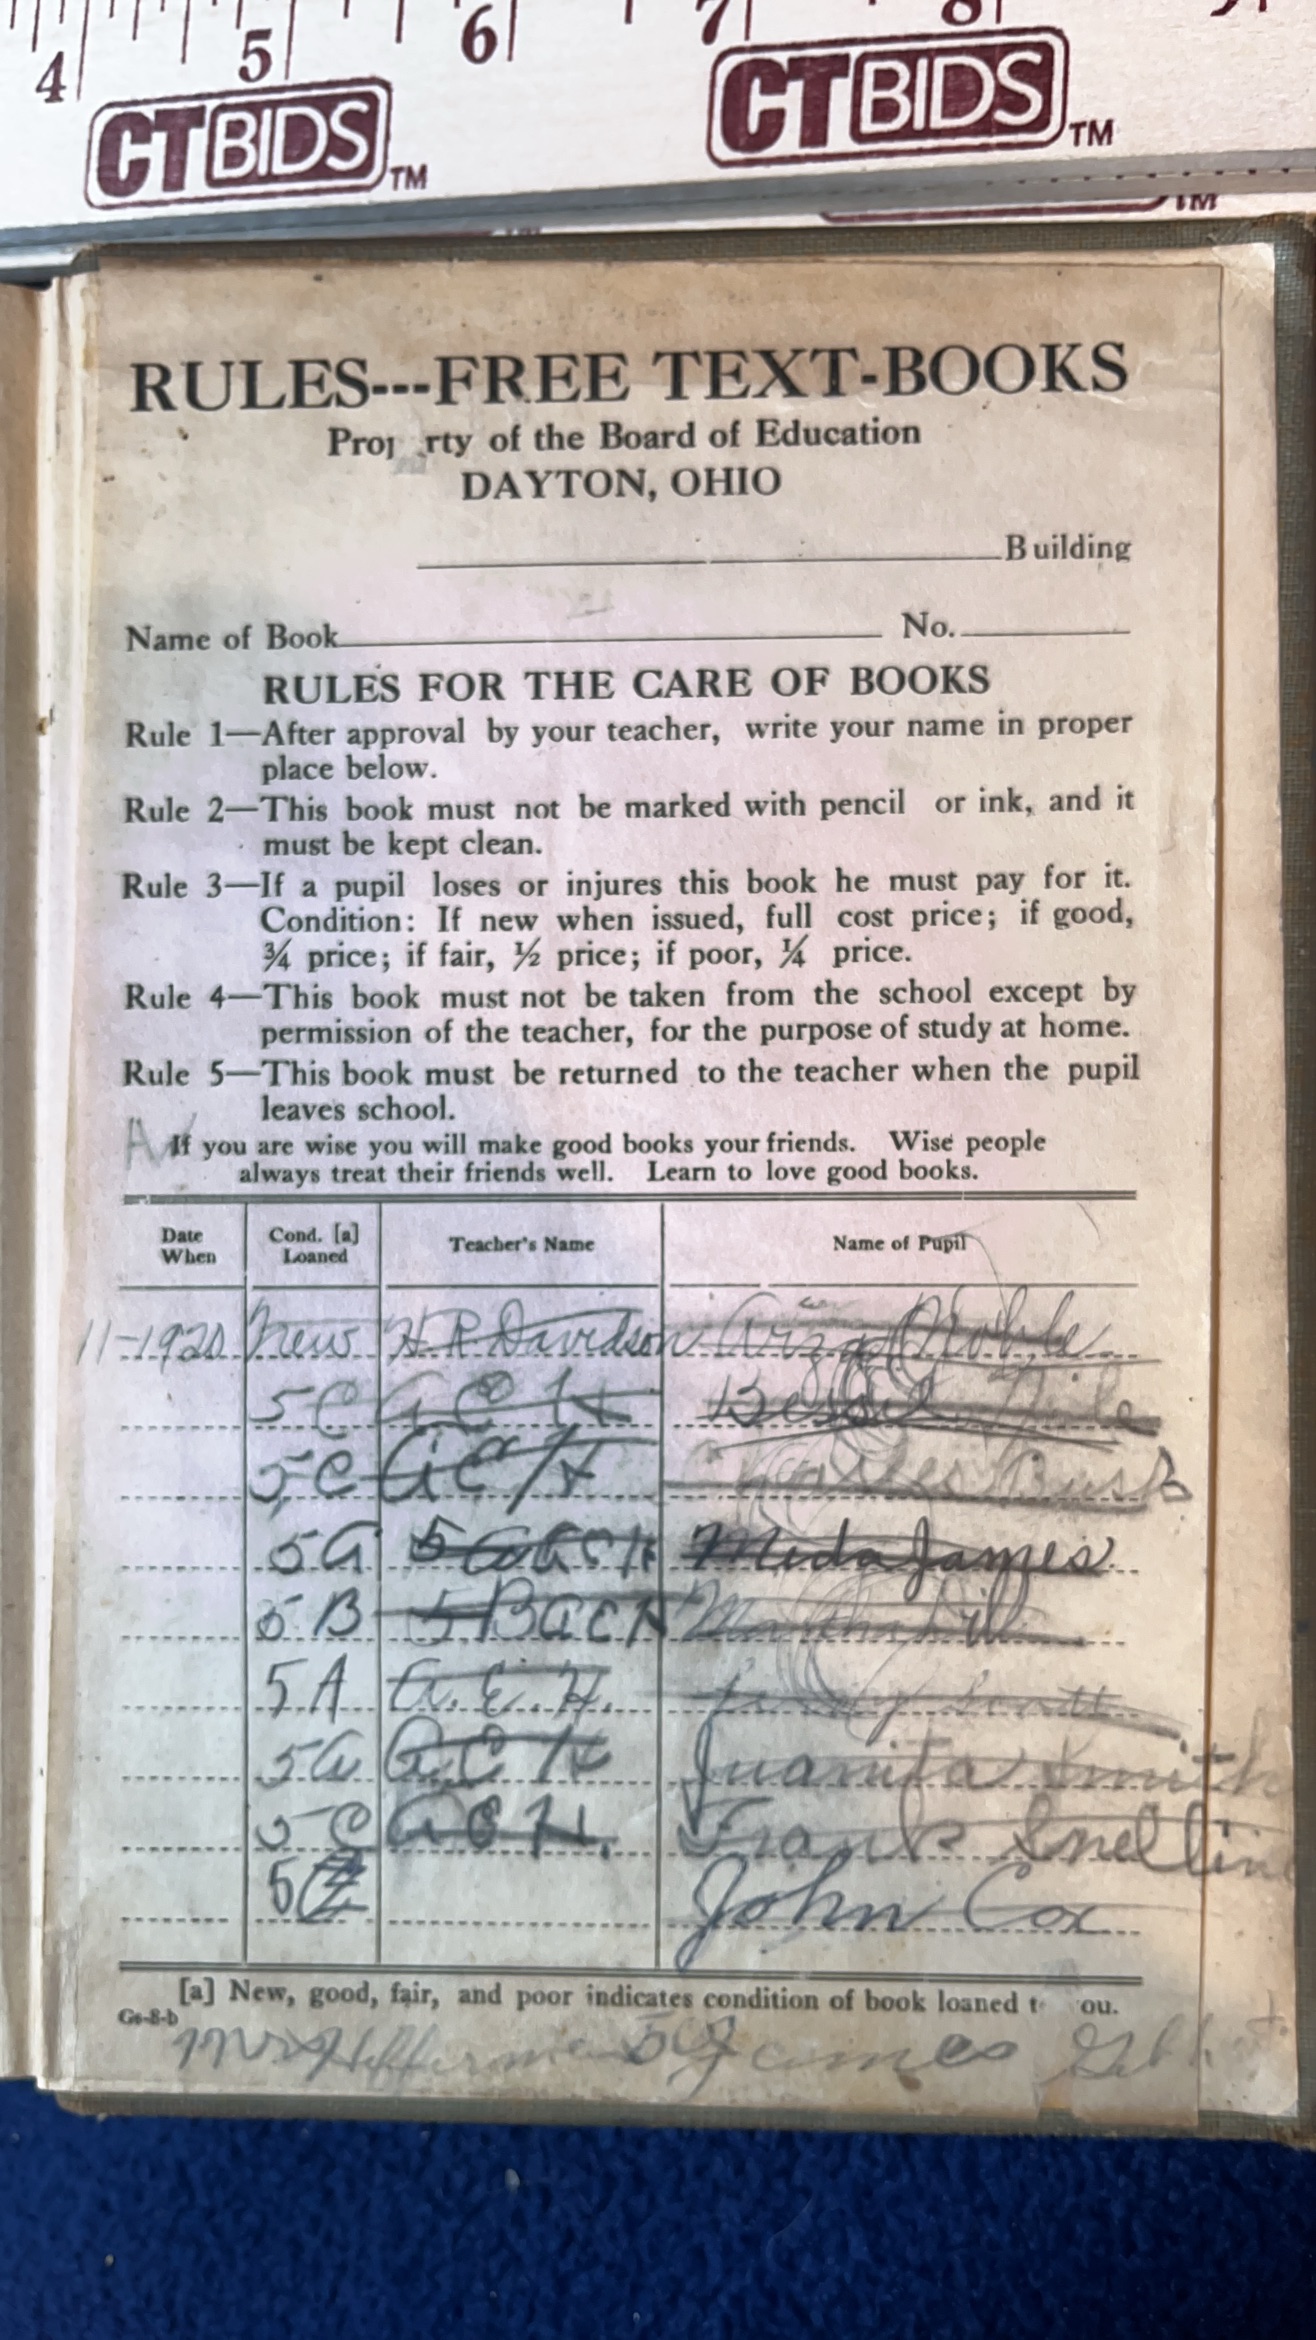 4 5 6 7 8
CTBIDS TM CTBIDS TM
TM
RULES---FREE TEXT-BOOKS
Prop rty of the Board of Education
DAYTON, OHIO
Building
Name of Book No.
RULES FOR THE CARE OF BOOKS
Rule 1—After approval by your teacher, write your name in proper
place below.
Rule 2—This book must not be marked with pencil or ink, and it
must be kept clean.
Rule 3—If a pupil loses or injures this book he must pay for it.
Condition: If new when issued, full cost price; if good,
¾ price; if fair, ½ price; if poor, ¼ price.
Rule 4—This book must not be taken from the school except by
permission of the teacher, for the purpose of study at home.
Rule 5—This book must be returned to the teacher when the pupil
leaves school.
If you are wise you will make good books your friends. Wise people
always treat their friends well. Learn to love good books.
Date When Cond. [a] Loaned Teacher's Name Name of Pupil
11-1920 New H. R. Davidson Noble
5C A C H Bessie
5C A C H Charles Bush
5A 5 A A C H Meda James
5B 5 B A C H Martha
5A A. C. H. Scott
5A A C H Juanita Smith
5C A C H. Frank Snelling
5 John Cox
[a] New, good, fair, and poor indicates condition of book loaned t ou.
Gs-8-b
James